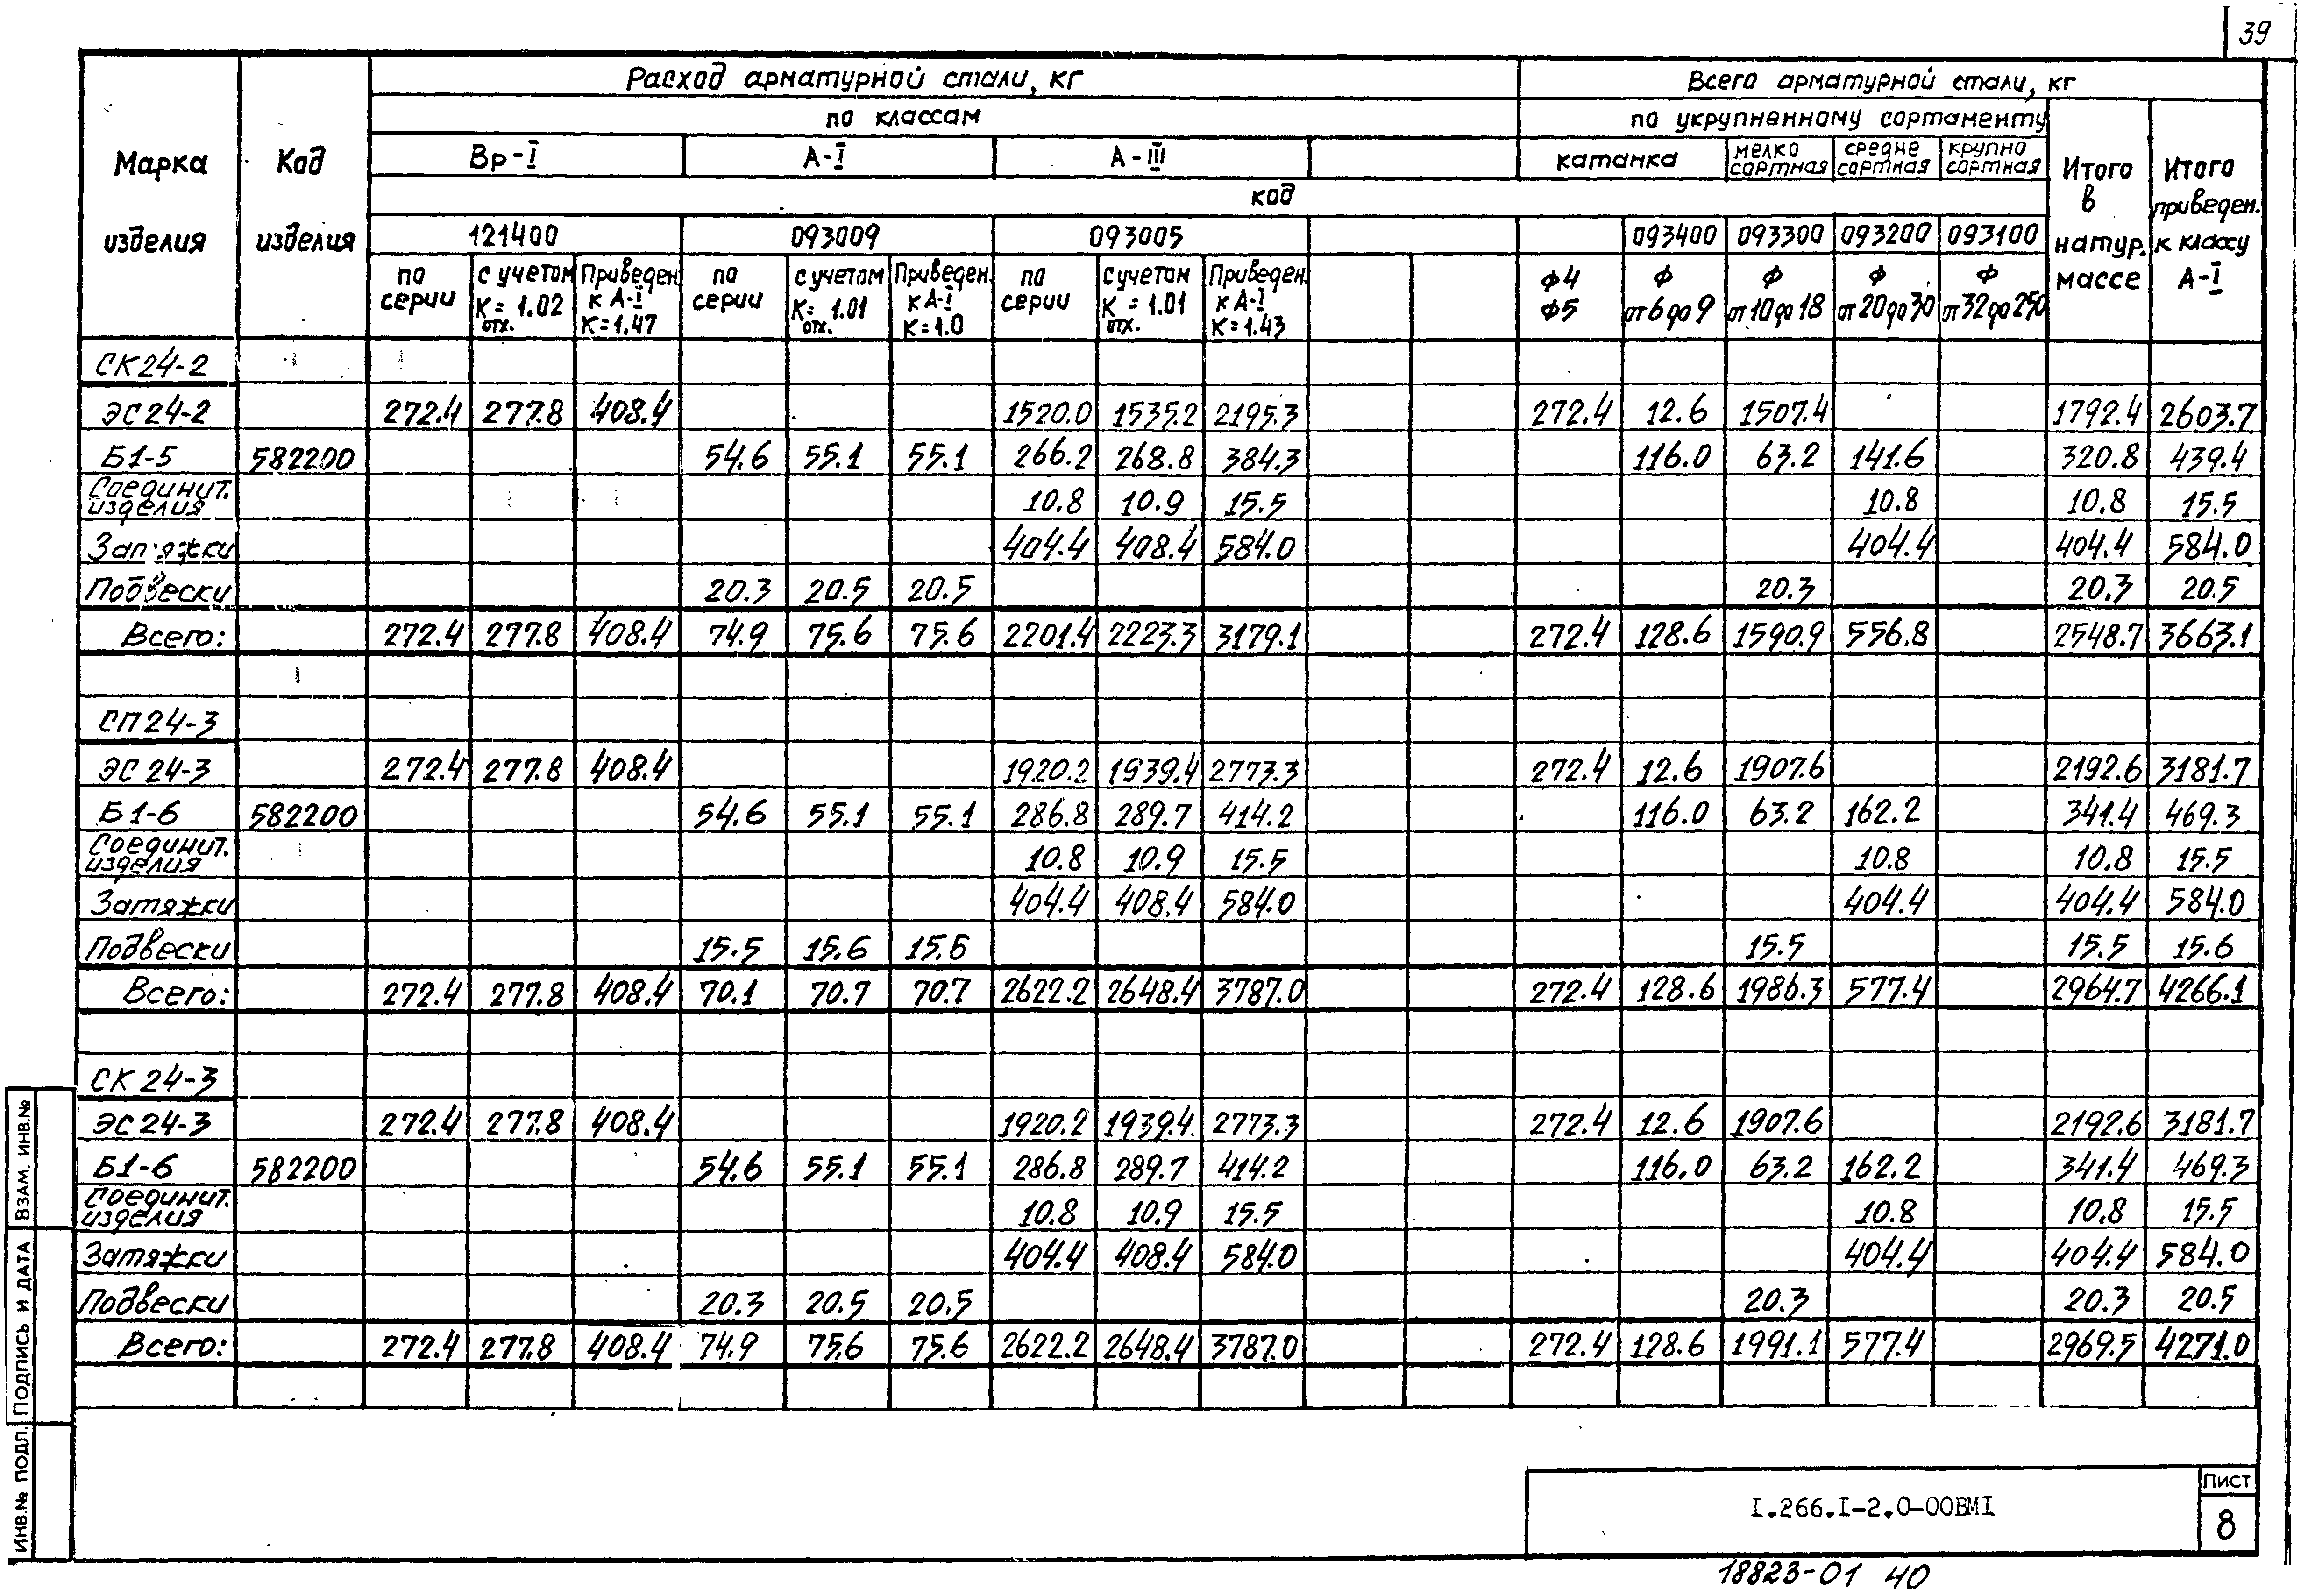 39
Расход арматурной стали, кг | Всего арматурной стали, кг
по классам | по укрупненному сортаменту
Марка изделия | Код изделия | Вр-I | А-I | А-III | катанка | мелко сортная | средне сортная | крупно сортная | Итого в натур. массе | Итого приведен. к классу А-I
код
121400 | 093009 | 093005 | 093400 | 093300 | 093200 | 093100
по серии | с учетом К отх. = 1.02 | Приведен. к А-I К=1.47 | по серии | с учетом К отх. = 1.01 | Приведен. к А-I К=1.0 | по серии | с учетом К отх. = 1.01 | Приведен. к А-I К=1.43 | Ф4 Ф5 | Ф от 6 до 9 | Ф от 10 до 18 | Ф от 20 до 30 | Ф от 32 до 250
СК24-2
ЭС24-2 272.4 277.8 408.4 1520.0 1535.2 2195.3 272.4 12.6 1507.4 1792.4 2603.7
Б1-5 582200 54.6 55.1 55.1 266.2 268.8 384.3 116.0 63.2 141.6 320.8 439.4
Соединит. изделия 10.8 10.9 15.5 10.8 10.8 15.5
Затяжки 404.4 408.4 584.0 404.4 404.4 584.0
Подвески 20.3 20.5 20.5 20.3 20.3 20.5
Всего: 272.4 277.8 408.4 74.9 75.6 75.6 2201.4 2223.3 3179.1 272.4 128.6 1590.9 556.8 2548.7 3663.1
СП24-3
ЭС24-3 272.4 277.8 408.4 1920.2 1939.4 2773.3 272.4 12.6 1907.6 2192.6 3181.7
Б1-6 582200 54.6 55.1 55.1 286.8 289.7 414.2 116.0 63.2 162.2 341.4 469.3
Соединит. изделия 10.8 10.9 15.5 10.8 10.8 15.5
Затяжки 404.4 408.4 584.0 404.4 404.4 584.0
Подвески 15.5 15.6 15.6 15.5 15.5 15.6
Всего: 272.4 277.8 408.4 70.1 70.7 70.7 2622.2 2648.4 3787.0 272.4 128.6 1986.3 577.4 2964.7 4266.1
СК24-3
ЭС24-3 272.4 277.8 408.4 1920.2 1939.4 2773.3 272.4 12.6 1907.6 2192.6 3181.7
Б1-6 582200 54.6 55.1 55.1 286.8 289.7 414.2 116.0 63.2 162.2 341.4 469.3
Соединит. изделия 10.8 10.9 15.5 10.8 10.8 15.5
Затяжки 404.4 408.4 584.0 404.4 404.4 584.0
Подвески 20.3 20.5 20.5 20.3 20.3 20.5
Всего: 272.4 277.8 408.4 74.9 75.6 75.6 2622.2 2648.4 3787.0 272.4 128.6 1991.1 577.4 2969.5 4271.0
ВЗАМ. ИНВ.№
ПОДПИСЬ И ДАТА
ИНВ.№ ПОДЛ.
I.266.I-2.0-00ВМI
Лист
8
18823-01 40